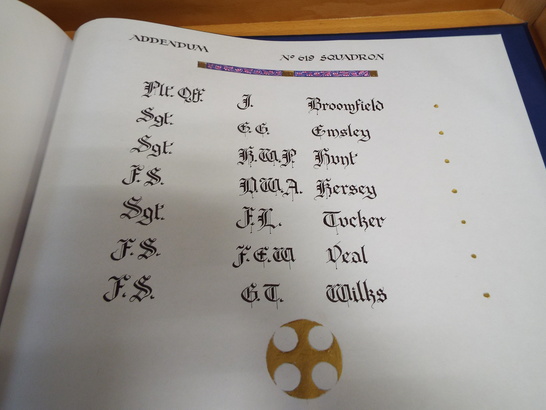 ADDENDUM
Nº 619 SQUADRON
Plt. Off. J. Broomfield
Sgt. G.G. Emsley
Sgt. H.W.P. Hunt
F.S. D.W.A. Kersey
Sgt. F.L. Tucker
F.S. F.E.W Veal
F.S. G.T. Wilks